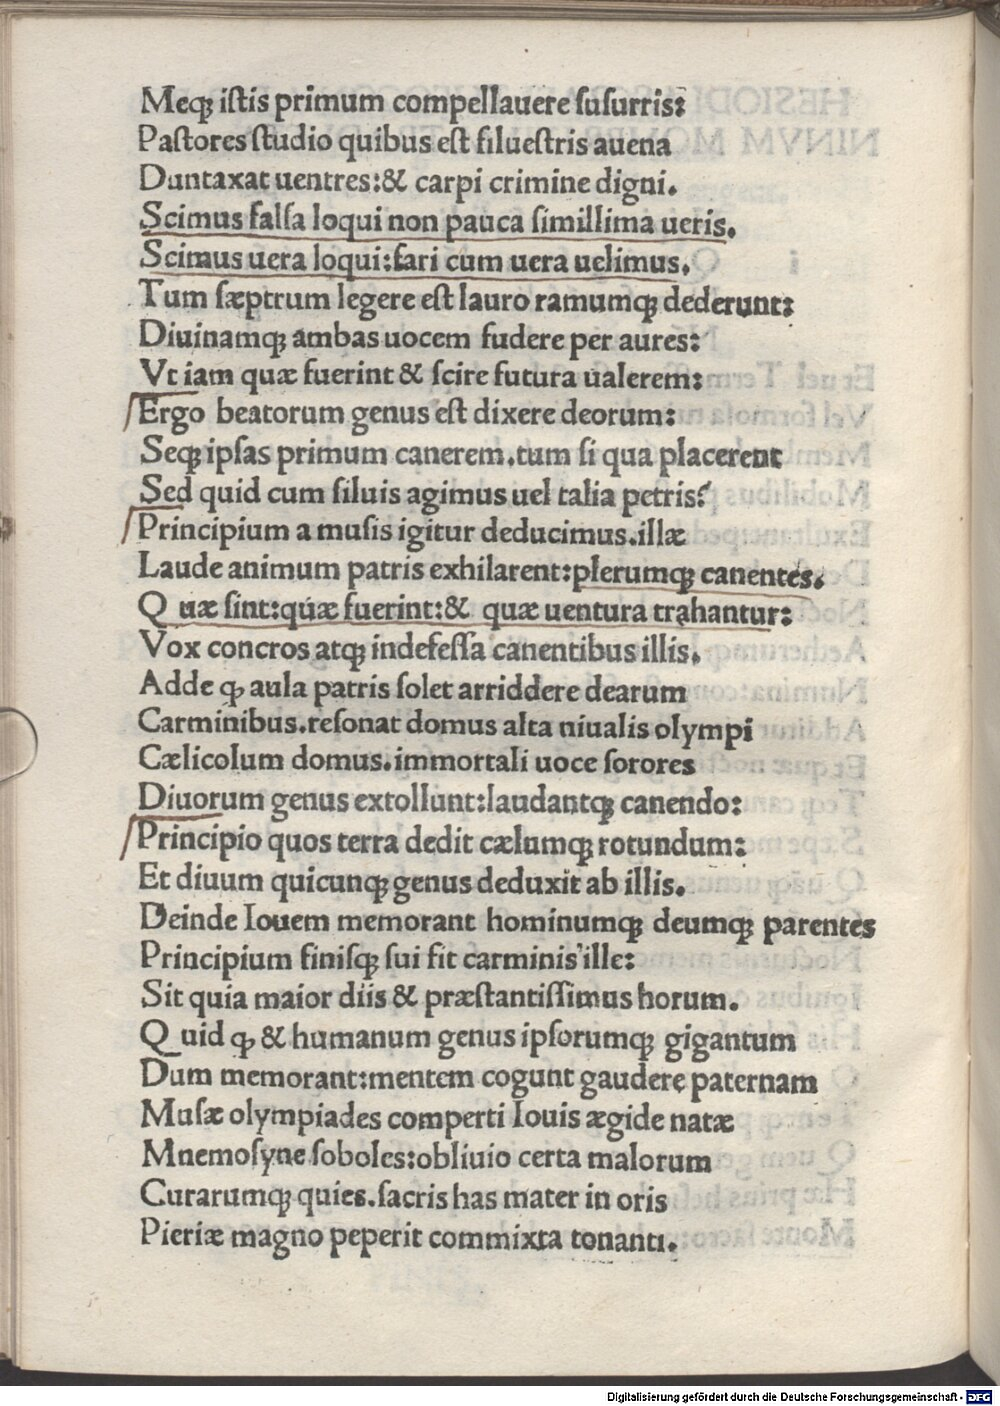 Meqꝫ iſtis primum compellauere ſuſurris:
Paſtores ſtudio quibus eſt ſilueſtris auena
Duntaxat uentres:& carpi crimine digni.
Scimus falſa loqui non pauca ſimillima ueris.
Scimus uera loqui:fari cum uera uelimus.
Tum ſæptrum legere eſt lauro ramumqꝫ dederunt:
Diuinamqꝫ ambas uocem fudere per aures:
Vt iam quæ fuerint & ſcire futura ualerem:
Ergo beatorum genus eſt dixere deorum:
Seqꝫ ipſas primum canerem.tum ſi qua placerent
Sed quid cum ſiluis agimus uel talia petris?
Principium a muſis igitur deducimus.illæ
Laude animum patris exhilarent:plerumqꝫ canentes.
Q uæ ſint:quæ fuerint:& quæ uentura trahantur:
Vox concros atqꝫ indefeſſa canentibus illis.
Adde ꝙ aula patris ſolet arriddere dearum
Carminibus.reſonat domus alta niualis olympi
Cælicolum domus.immortali uoce ſorores
Diuorum genus extollunt:laudantqꝫ canendo:
Principio quos terra dedit cælumqꝫ rotundum:
Et diuum quicunqꝫ genus deduxit ab illis.
Deinde Iouem memorant hominumqꝫ deumqꝫ parentes
Principium finiſqꝫ ſui fit carminis ille:
Sit quia maior diis & præſtantiſſimus horum.
Q uid ꝙ & humanum genus ipſorumqꝫ gigantum
Dum memorant:mentem cogunt gaudere paternam
Muſæ olympiades comperti Iouis ægide natæ
Mnemoſyne ſoboles:obliuio certa malorum
Curarumqꝫ quies.ſacris has mater in oris
Pieriæ magno peperit commixta tonanti.
Digitalisierung gefördert durch die Deutsche Forschungsgemeinschaft - DFG